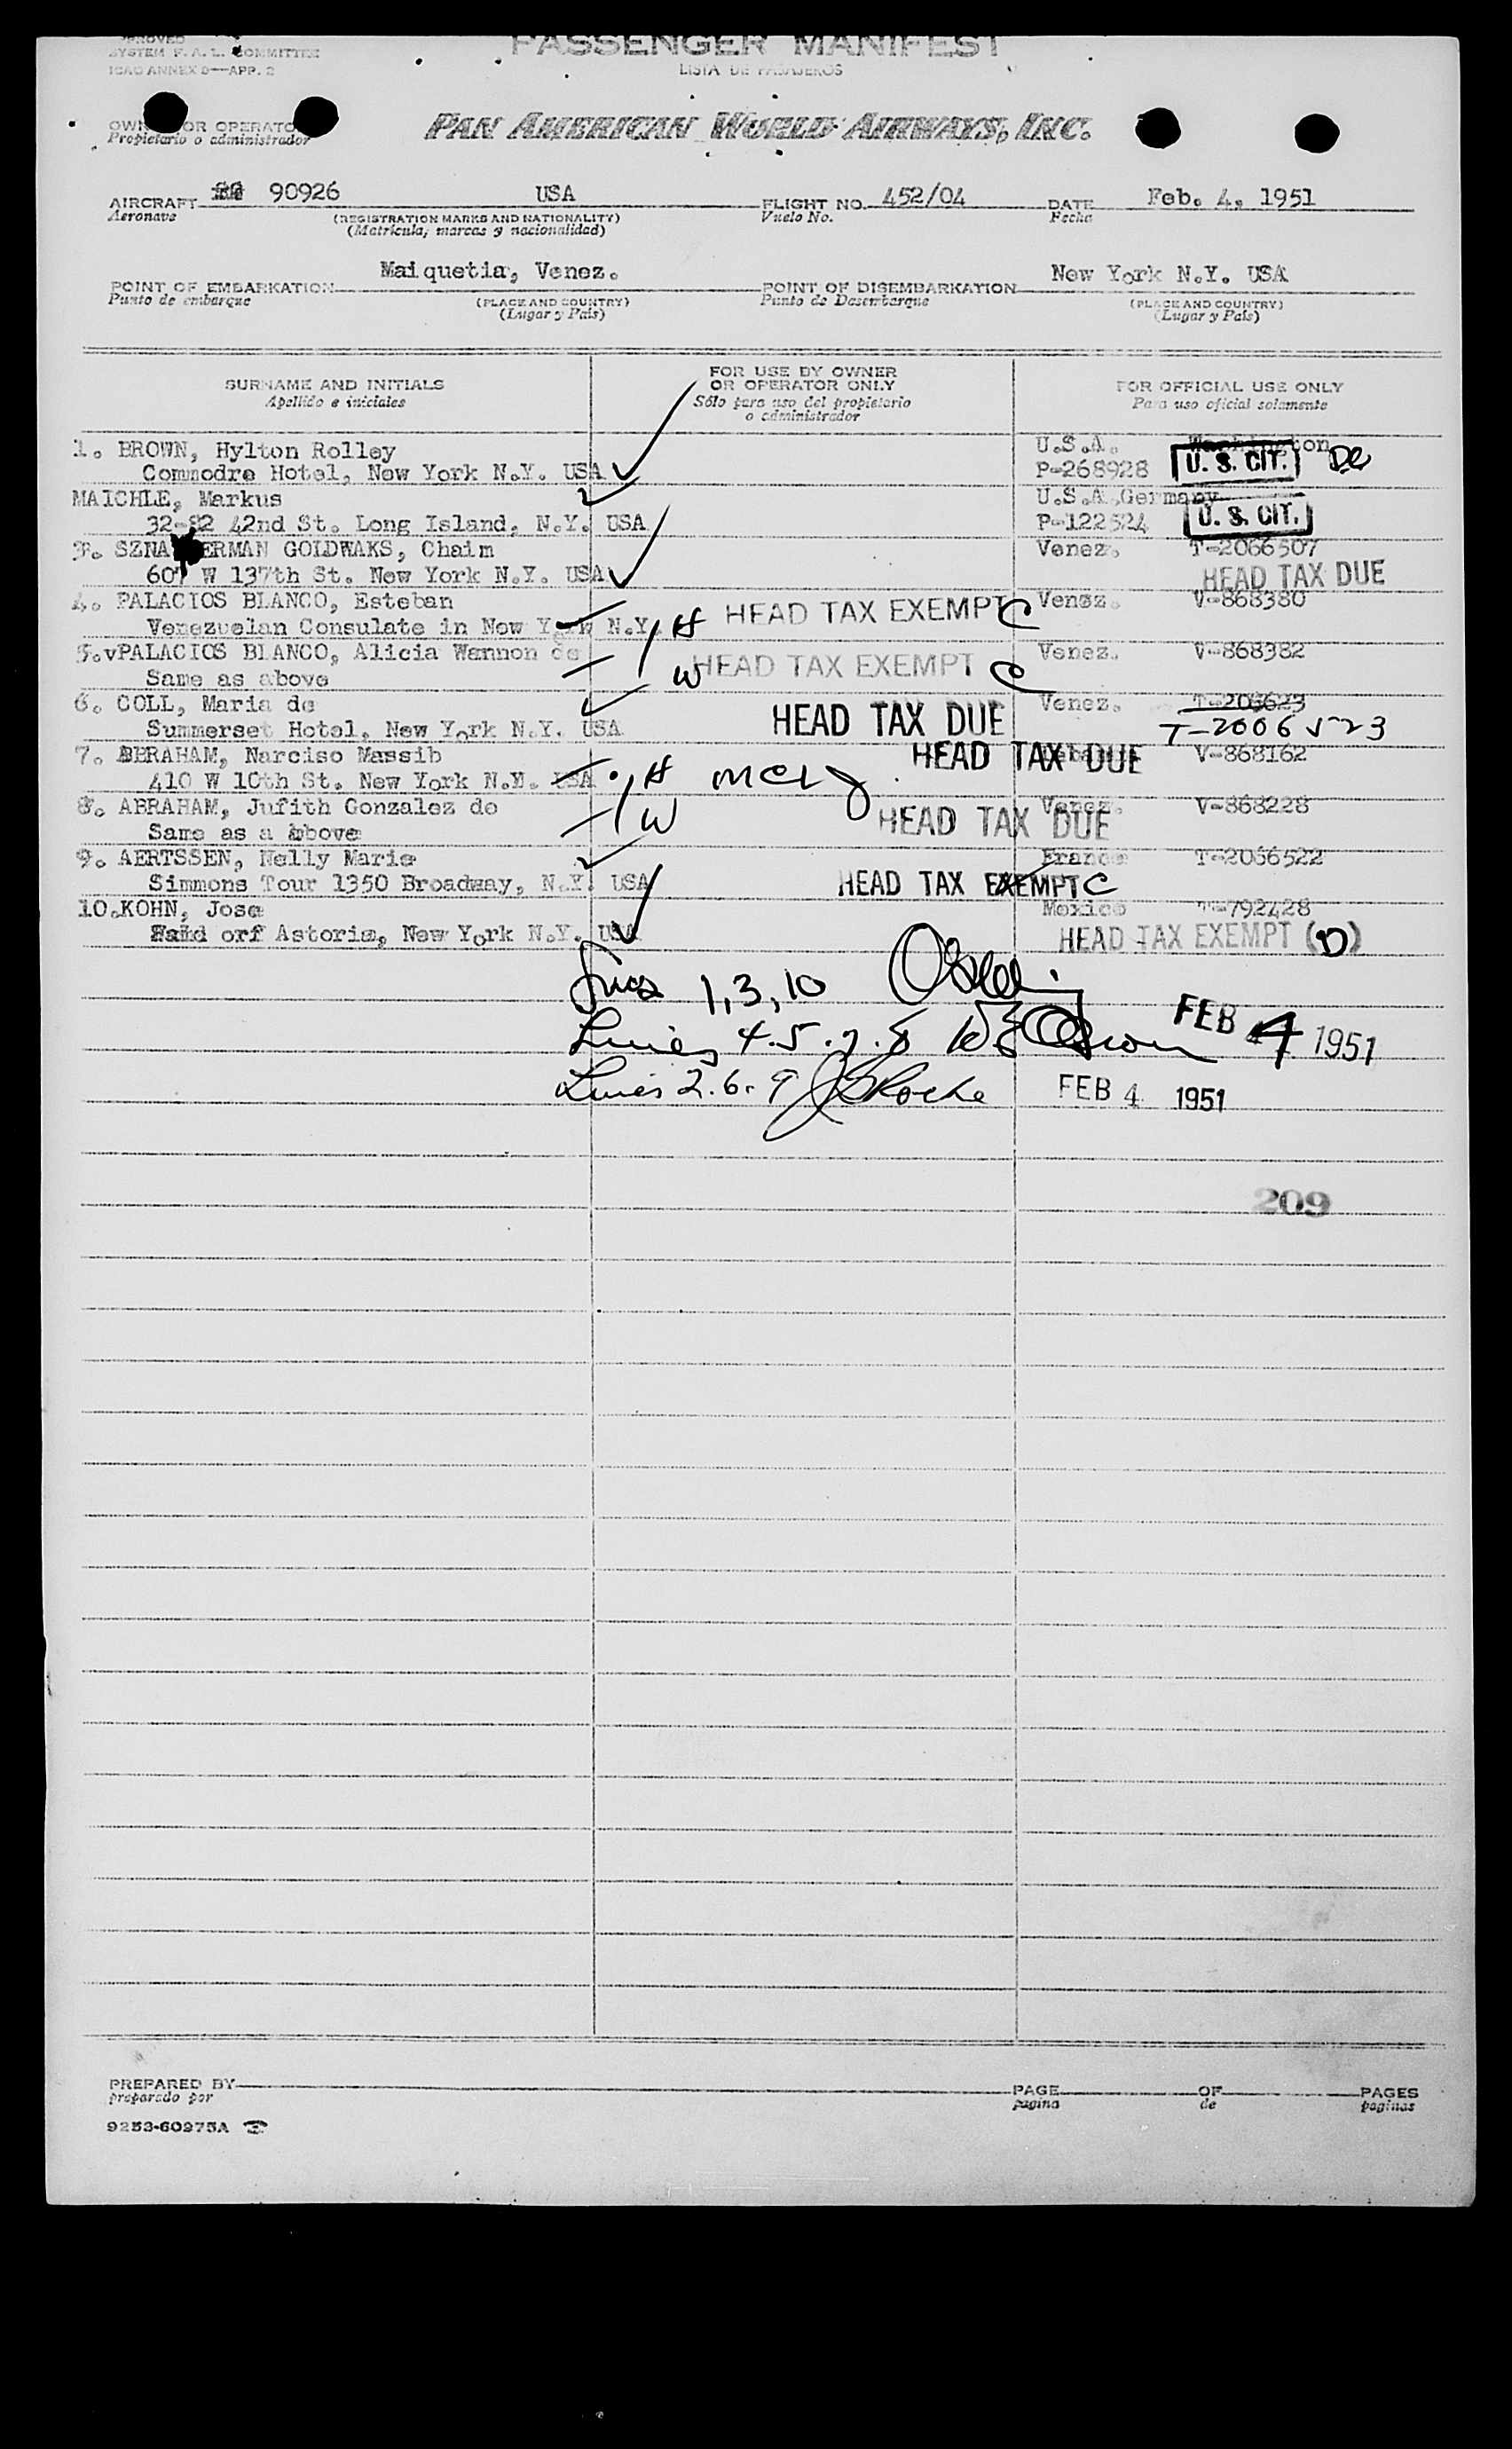 APPROVED
SYSTEM F. A. L. COMMITTEE
ICAO ANNEX 9—APP. 2
PASSENGER MANIFEST
LISTA DE PASAJEROS
OWNER OR OPERATOR
Propietario o administrador
PAN AMERICAN WORLD AIRWAYS, INC.
AIRCRAFT 90926 USA FLIGHT NO. 452/04 DATE Feb. 4, 1951
Aeronave (REGISTRATION MARKS AND NATIONALITY) Vuelo No. Fecha
(Matrícula, marcas y nacionalidad)
POINT OF EMBARKATION Maiquetia, Venez. POINT OF DISEMBARKATION New York N.Y. USA
Punto de embarque (PLACE AND COUNTRY) Punto de Desembarque (PLACE AND COUNTRY)
(Lugar y País) (Lugar y País)
SURNAME AND INITIALS FOR USE BY OWNER OR OPERATOR ONLY FOR OFFICIAL USE ONLY
Apellido e iniciales Sólo para uso del propietario o administrador Para uso oficial solamente
1. BROWN, Hylton Rolley U.S.A. Washington
Commodre Hotel, New York N.Y. USA P-268928 U. S. CIT. DC
MAICHLE, Markus U.S.A. Germany
32-82 42nd St. Long Island, N.Y. USA P-122524 U. S. CIT.
3. SZNA ERMAN GOLDWAKS, Chaim Venez. T-2066507
607 W 137th St. New York N.Y. USA HEAD TAX DUE
4. PALACIOS BLANCO, Esteban HEAD TAX EXEMPT C Venez. V-868380
Venezuelan Consulate in New York N.Y. H
5.vPALACIOS BLANCO, Alicia Wannon de HEAD TAX EXEMPT C Venez. V-868382
Same as above W
6. COLL, Maria de HEAD TAX DUE Venez. T-206623
Summerset Hotel, New York N.Y. USA T-2006523
7. ABRAHAM, Narciso Massib HEAD TAX DUE V-868162
410 W 10th St. New York N.Y. USA H
8. ABRAHAM, Jufith Gonzalez de HEAD TAX DUE Venez. V-868228
Same as a above W
9. AERTSSEN, Nelly Marie France T-2066522
Simmons Tour 1350 Broadway, N.Y. USA HEAD TAX EXEMPT C
10.KOHN, Jose Mexico T-792428
orf Astoria, New York N.Y. USA HEAD TAX EXEMPT (D)
1, 3, 10
Lines 4.5.7.8 FEB 4 1951
Lines 2.6.9 FEB 4 1951
209
PREPARED BY PAGE OF PAGES
preparado por pagina de paginas
9253-60975A